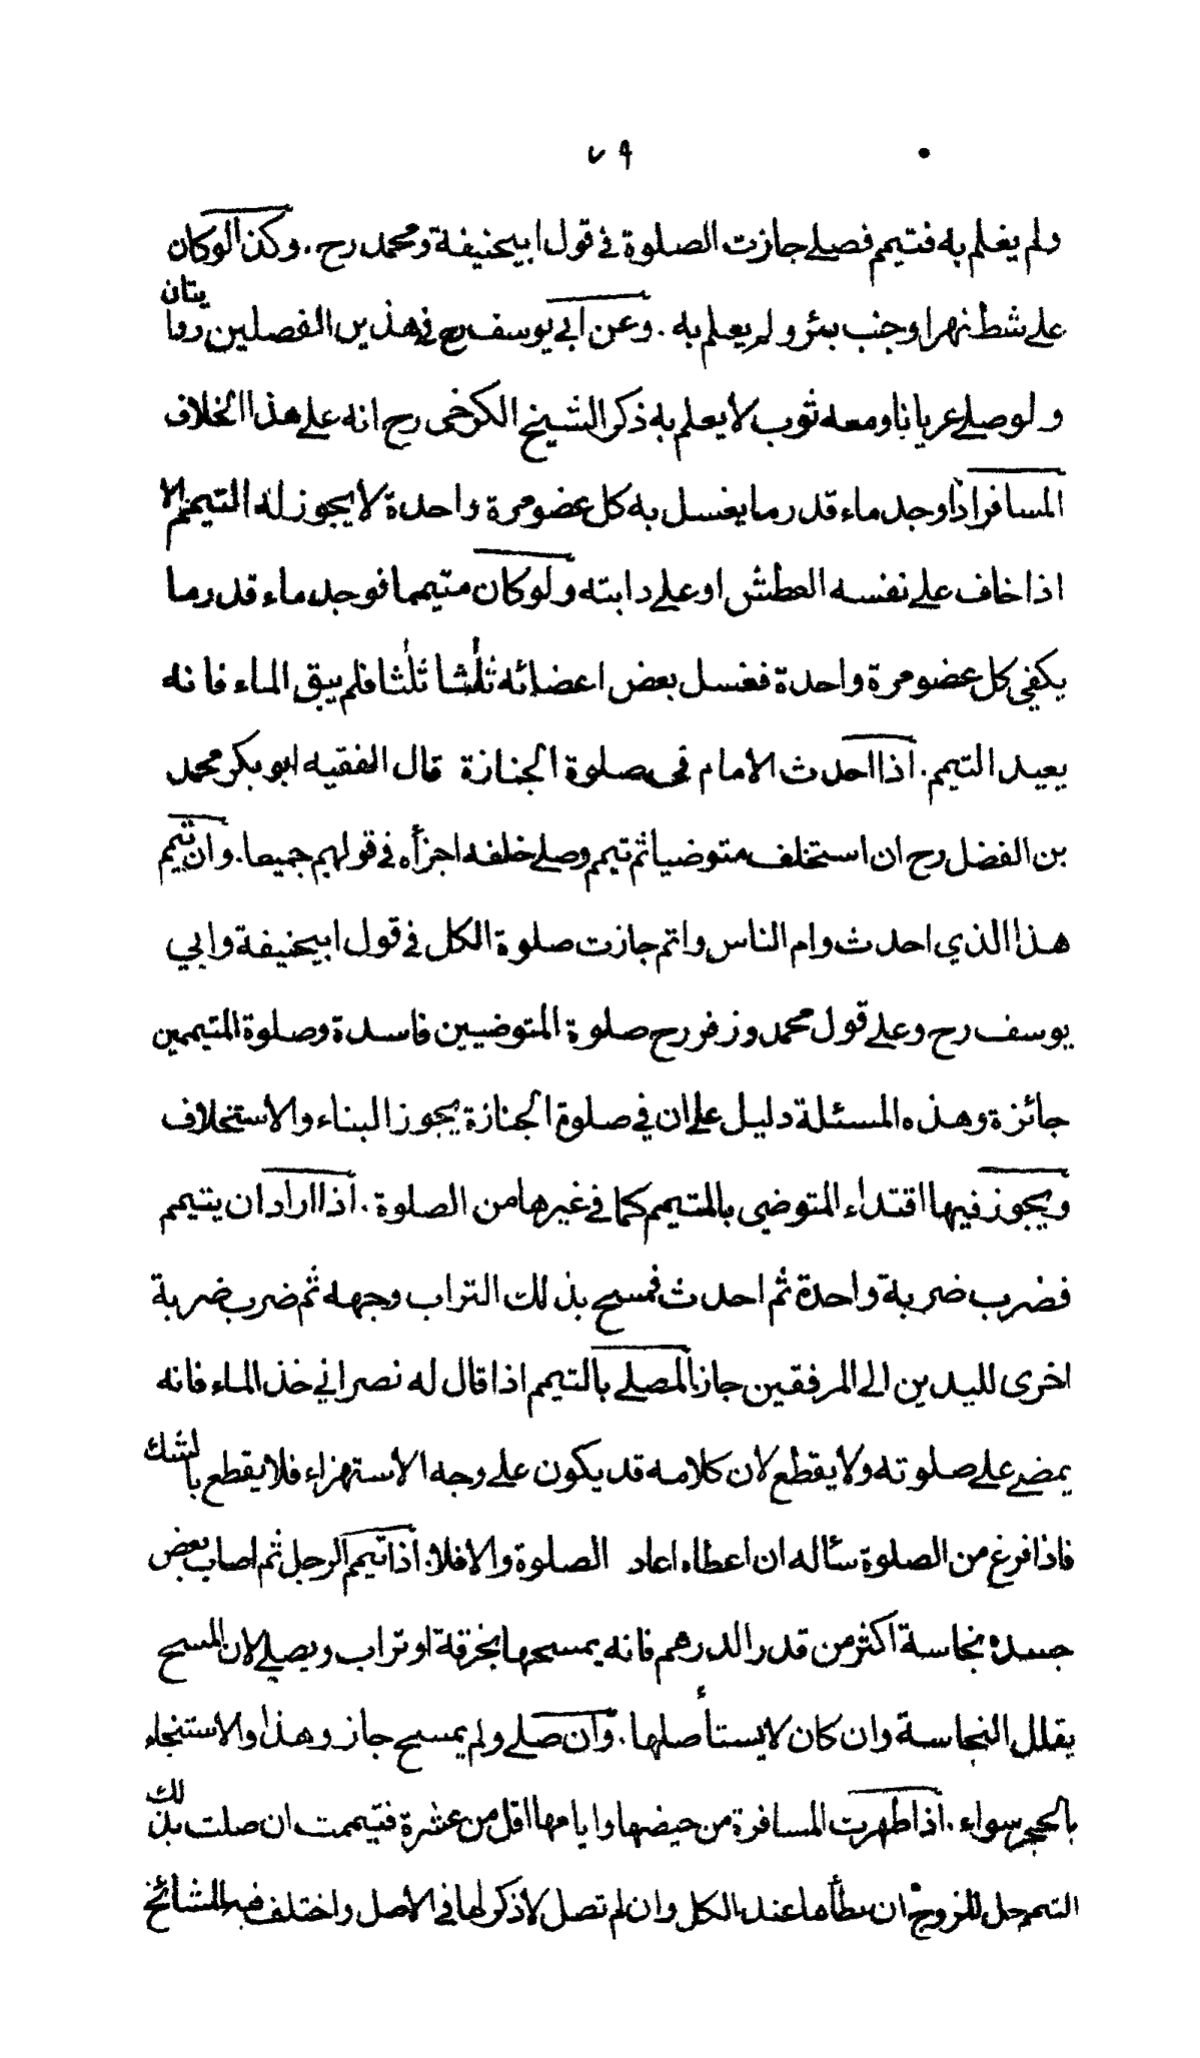 ٧٩
ولم يعلم به فتيمم فصلے جازت الصلوة في قول ابيحنيفة ومحمد رح . وكذا لو كان
علے شط نهر او جنب بئر ولم يعلم به . وعن ابي يوسف رح في هذين الفصلين روايتان
ولو صلے عريانا ومعه ثوب لا يعلم به ذكر الشيخ الكرخى رح انه علے هذا الخلاف
المسافر اذا وجد ماء قدر ما يغسل به كل عضو مرة واحدة لا يجوز له التيمم الا
اذا خاف علے نفسه العطش او علے دابته ولو كان متيمما فوجد ماء قدر ما
يكفي كل عضو مرة واحدة فغسل بعض اعضائه ثلٰثا ثلٰثا فلم يبق الماء فانه
يعيد التيمم . اذا احدث الامام فى صلوة الجنازة قال الفقيه ابو بكر محمد
بن الفضل رح ان استخلف متوضيا ثم تيمم وصلے خلفه اجزأه في قولهم جميعا . وان تيمم
هذا الذي احدث وام الناس واتم جازت صلوة الكل في قول ابيحنيفة وابي
يوسف رح وعلے قول محمد وزفر رح صلوة المتوضيين فاسدة وصلوة المتيممين
جائزة وهذه المسئلة دليل علے ان في صلوة الجنازة يجوز البناء والاستخلاف
ويجوز فيها اقتداء المتوضى بالمتيمم كما في غيرها من الصلوة . اذا اراد ان يتيمم
فضرب ضربة واحدة ثم احدث فمسح بذلك التراب وجهه ثم ضرب ضربة
اخرى لليدين الى المرفقين جاز المصلے بالتيمم اذا قال له نصراني خذ الماء فانه
يمضے علے صلوته ولا يقطع لان كلامه قد يكون علے وجه الاستهزاء فلا يقطع بالشك
فاذا فرغ من الصلوة سئاله ان اعطاه اعاد الصلوة والا فلا . اذا تيمم الرجل ثم اصاب بعض
جسده نجاسة اكثر من قدر الدرهم فانه يمسحها بخرقة او تراب ويصلے لان المسح
يقلل النجاسة وان كان لا يستأصلها . وان صلے ولم يمسح جاز وهذا والاستنجاء
بالحجر سواء . اذا طهرت المسافرة من حيضها وايامها اقل من عشرة فتيممت ان صلت بذلك
التيمم حل للزوج ان يطأها عند الكل وان لم تصل لا ذكر لها في الاصل واختلف فيه المشائخ